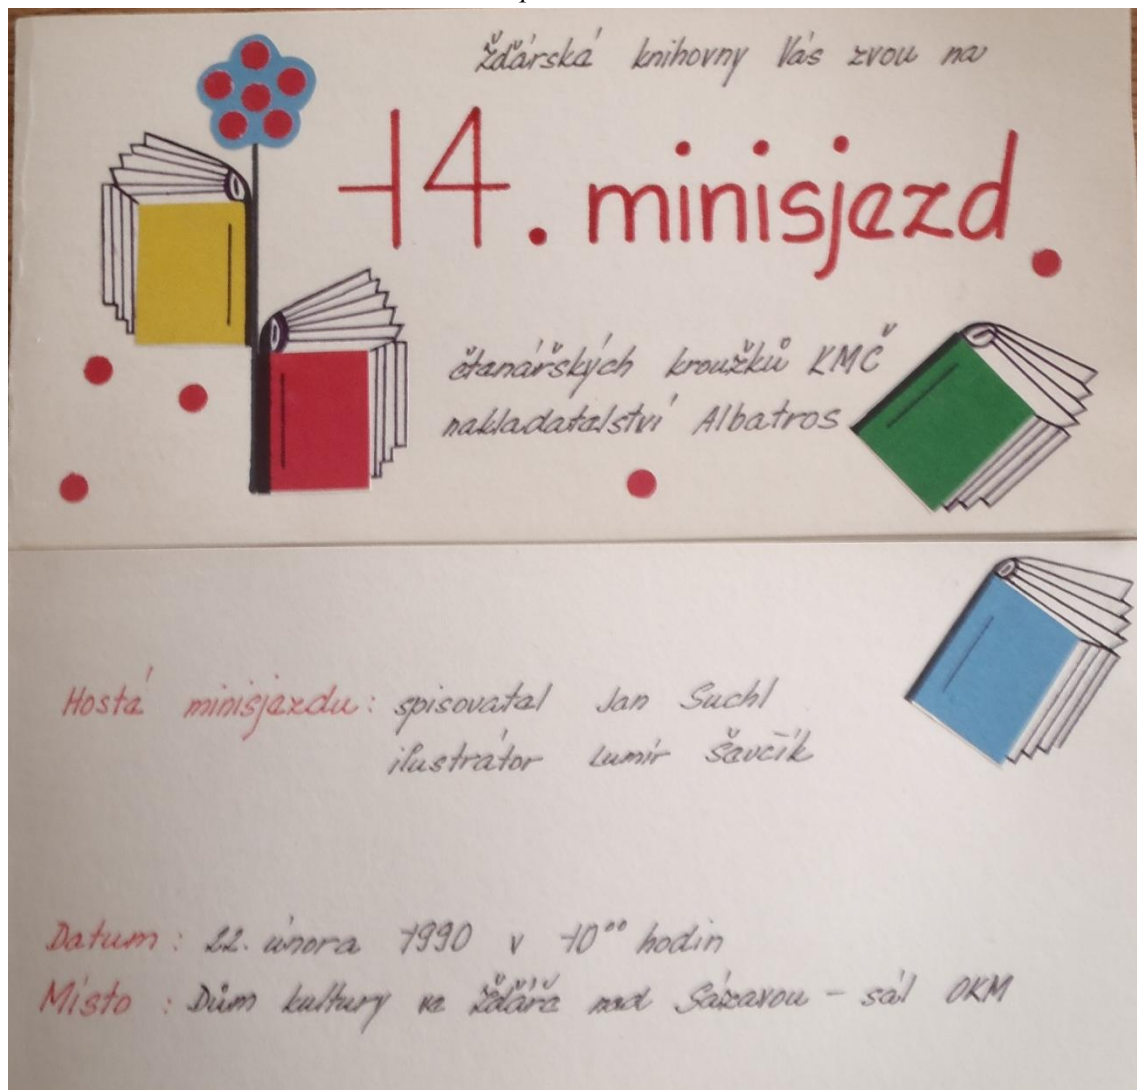 Žďárská knihovny Vás zvou na
14. minisjezd
čtenářských kroužků KMČ
nakladatelství Albatros
Hosté minisjezdu: spisovatel Jan Suchl
ilustrátor Lumír Ševčík
Datum: 22. února 1990 v 10⁰⁰ hodin
Místo: Dům kultury ve Žďáře nad Sázavou - sál OKM